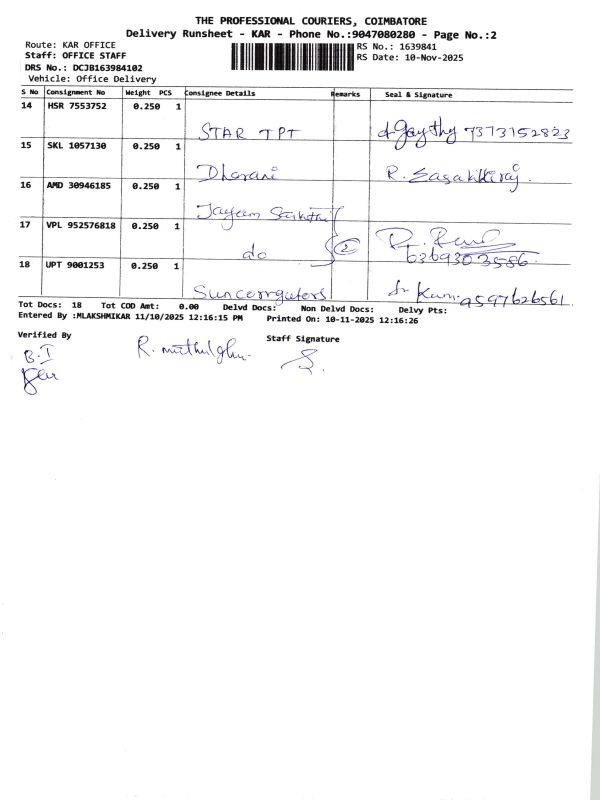 THE PROFESSIONAL COURIERS, COIMBATORE
Delivery Runsheet - KAR - Phone No.:9047080280 - Page No.:2
Route: KAR OFFICE RS No.: 1639841
Staff: OFFICE STAFF RS Date: 10-Nov-2025
DRS No.: DCJB163984102
Vehicle: Office Delivery
S No Consignment No Weight PCS Consignee Details Remarks Seal & Signature
14 HSR 7553752 0.250 1
STAR TPT 7373152823
15 SKL 1057130 0.250 1
Dharani R.
16 AMD 30946185 0.250 1
Jayam
17 VPL 952576818 0.250 1
do 2 6369303586
18 UPT 9001253 0.250 1
Suncorrgaters 9597626561
Tot Docs: 18 Tot COD Amt: 0.00 Delvd Docs: Non Delvd Docs: Delvy Pts:
Entered By :MLAKSHMIKAR 11/10/2025 12:16:15 PM Printed On: 10-11-2025 12:16:26
Verified By Staff Signature
B.I R.